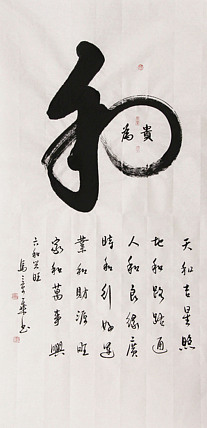 和
為貴
天和吉星照
地和路路通
人和良緣廣
時和行好運
業和財源旺
家和萬事興
六和興旺